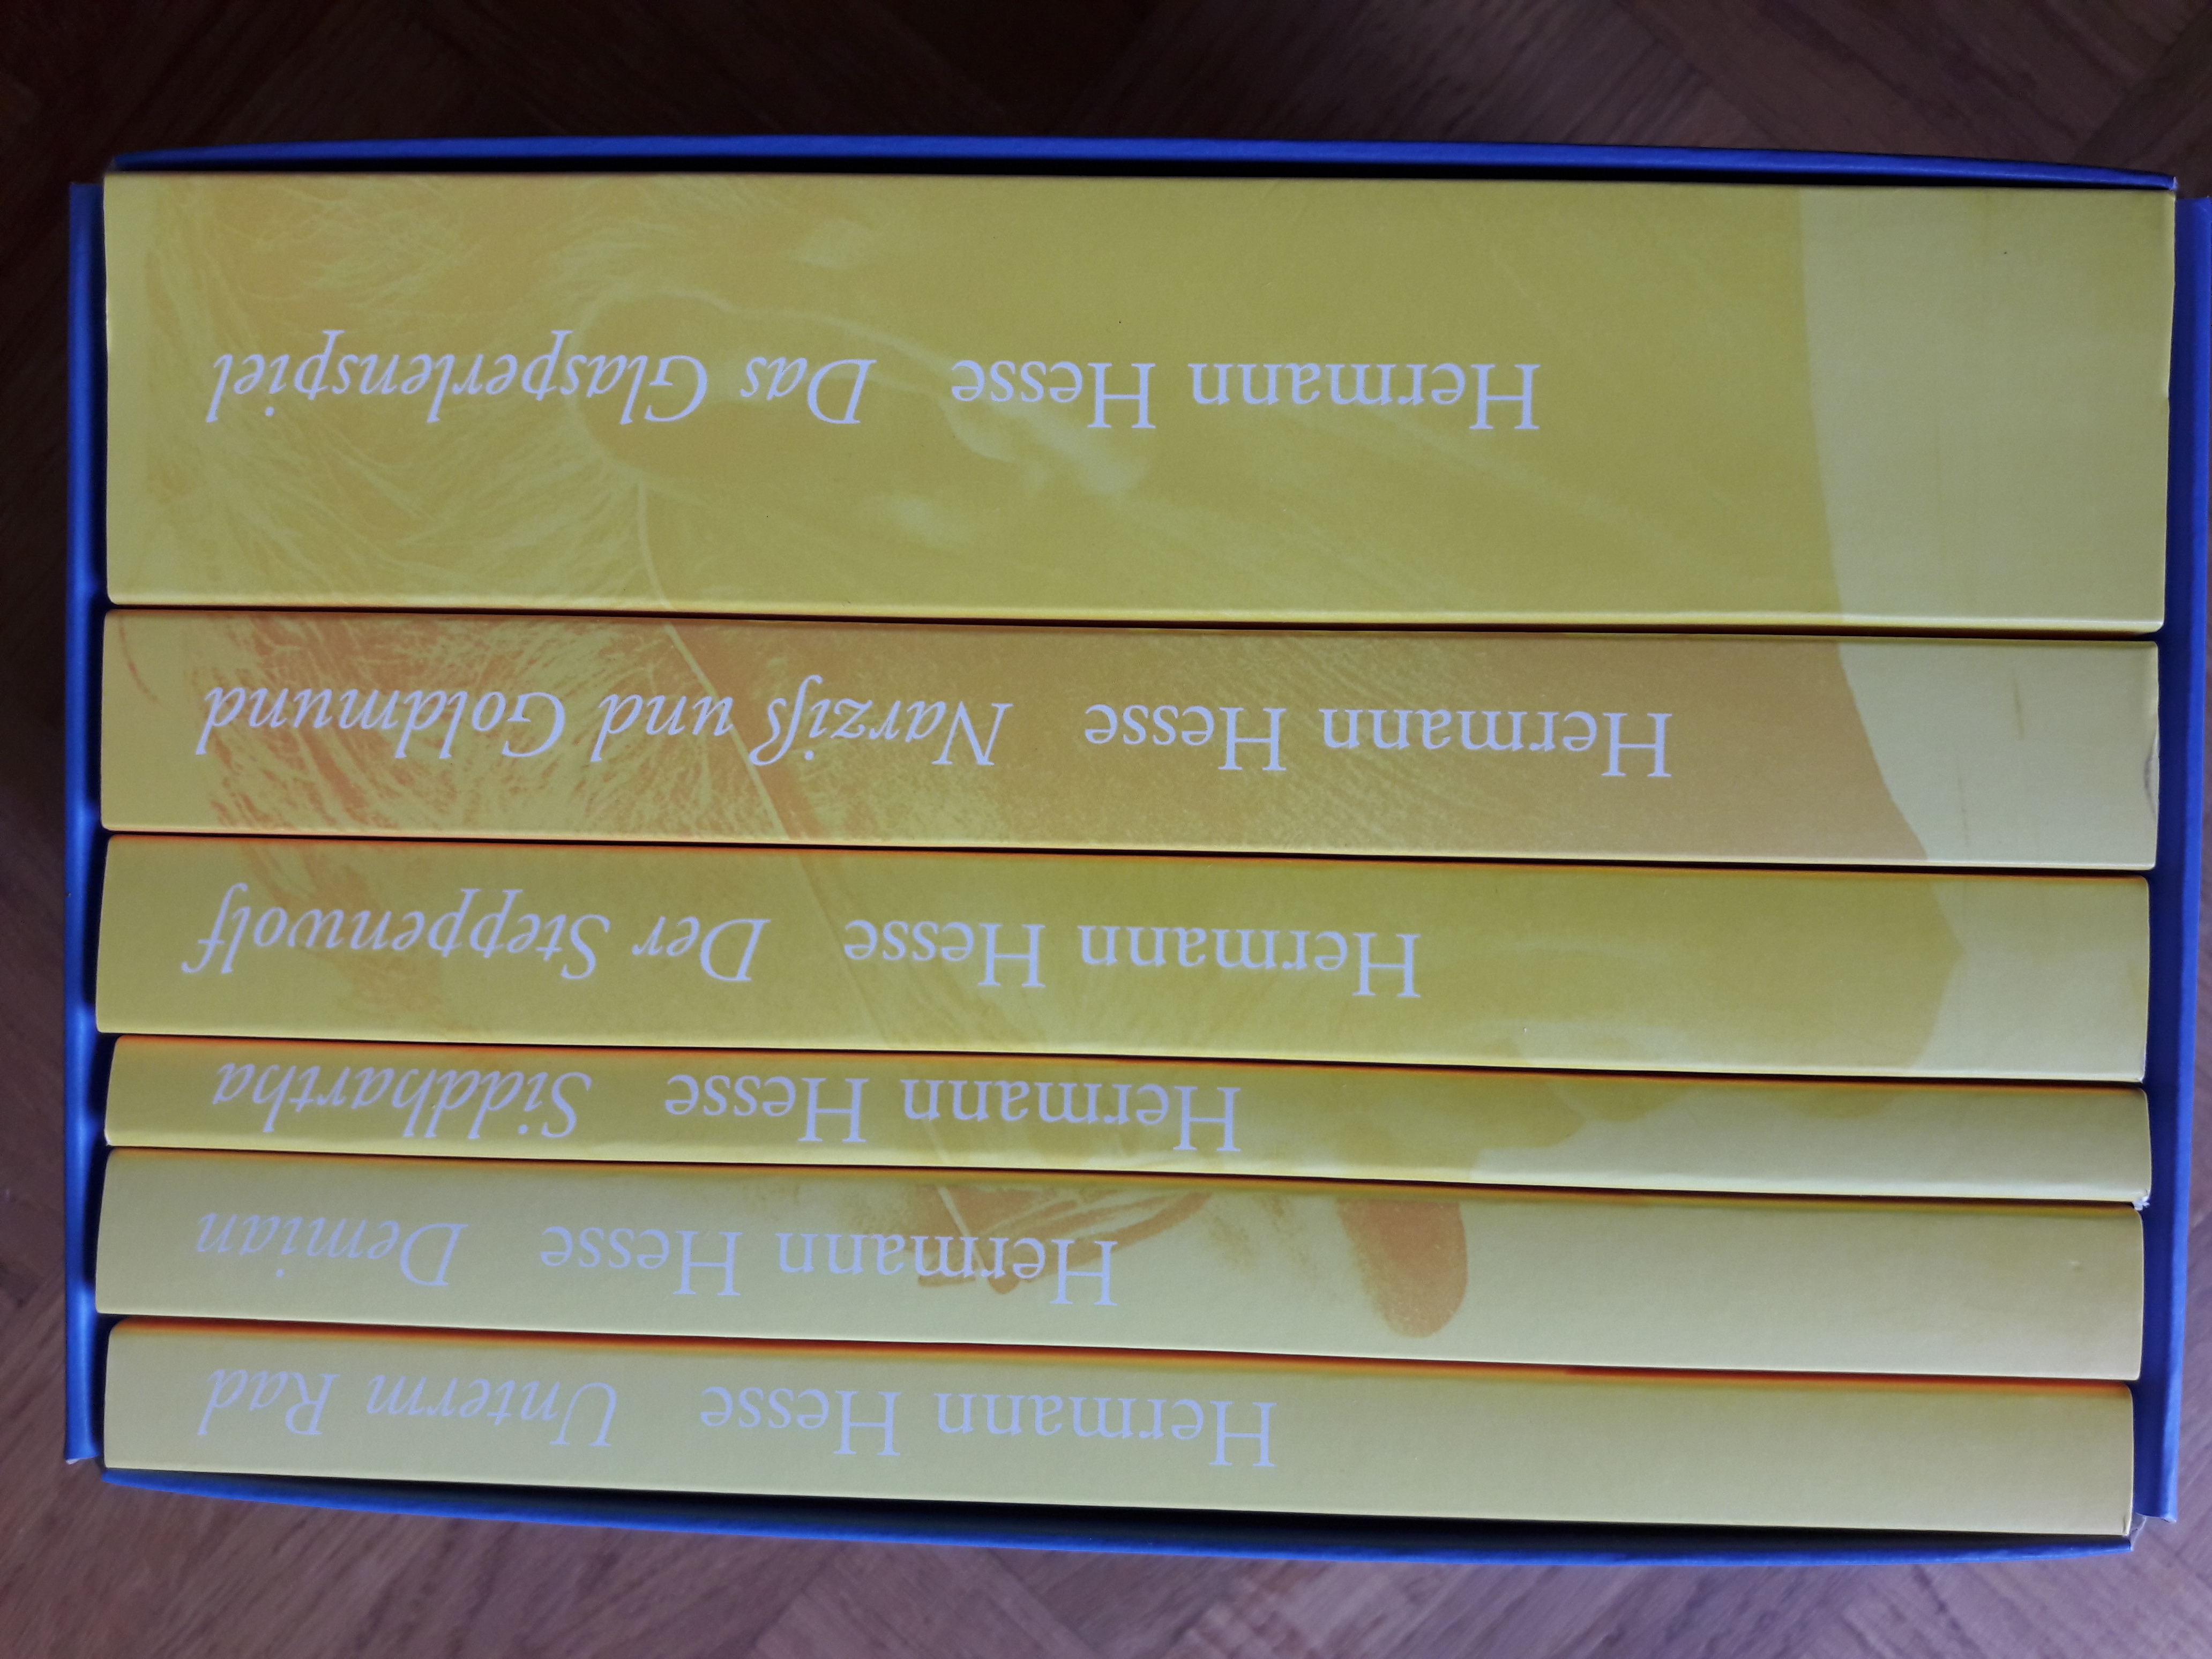 Hermann Hesse Unterm Rad
Hermann Hesse Demian
Hermann Hesse Siddhartha
Hermann Hesse Der Steppenwolf
Hermann Hesse Narziß und Goldmund
Hermann Hesse Das Glasperlenspiel